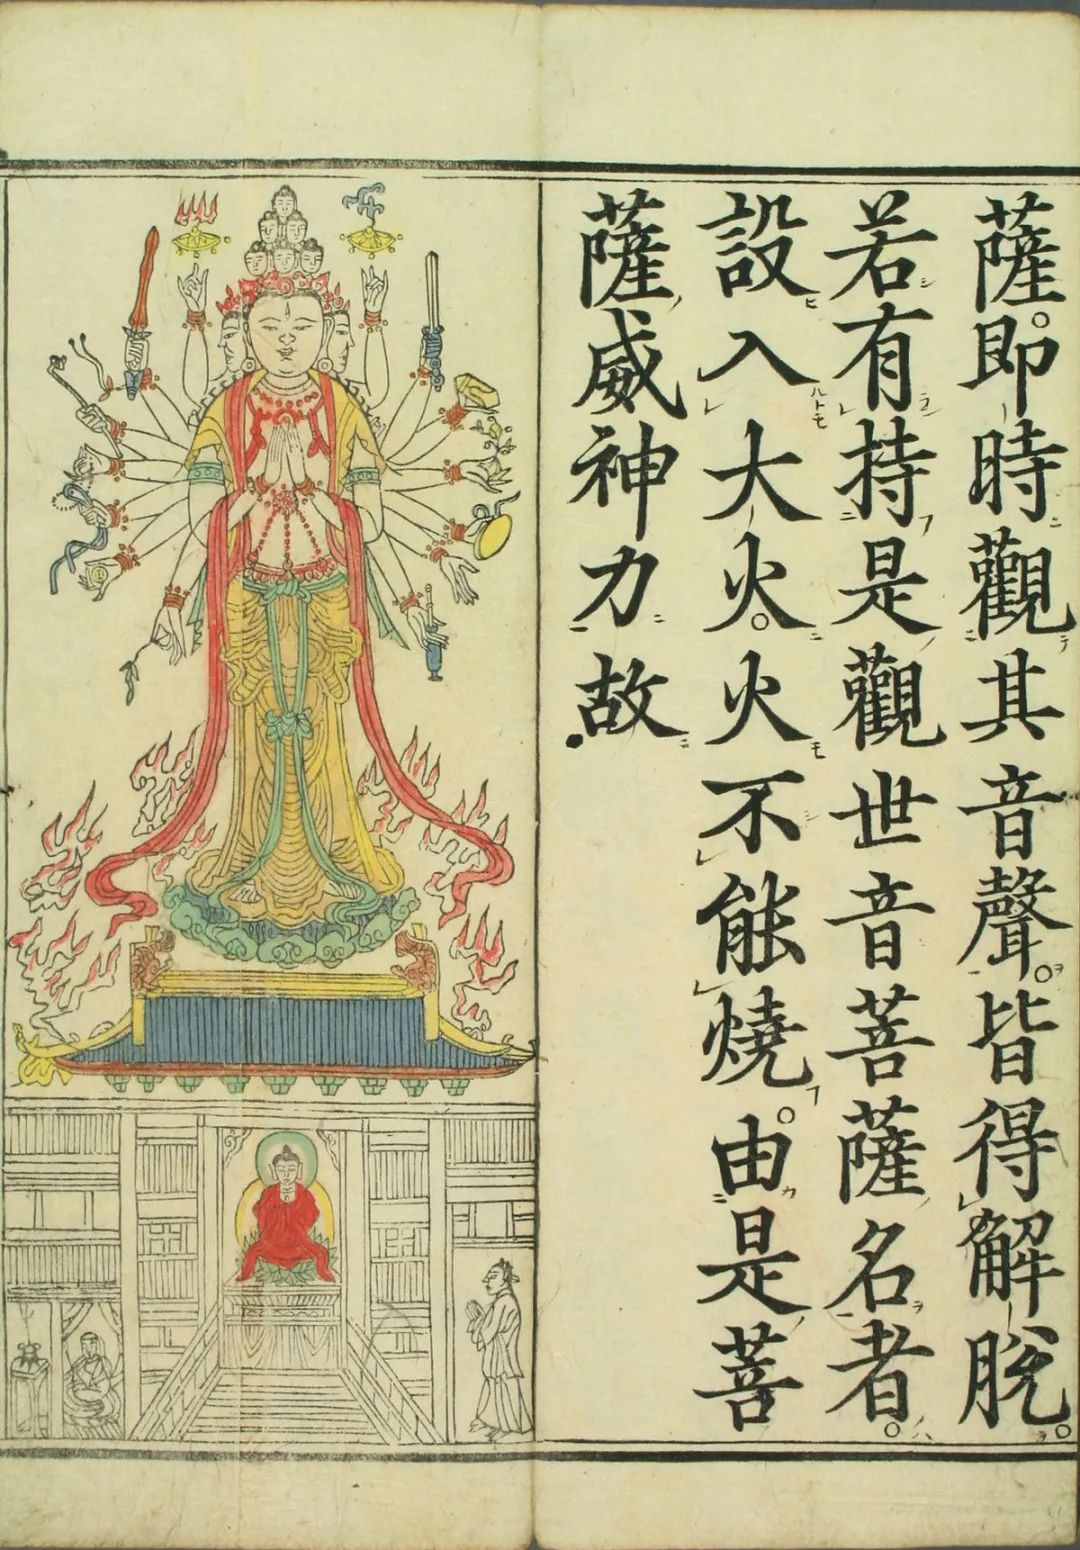 薩。即時觀其音聲。皆得解脫。
若有持是觀世音菩薩名者。
設入大火。火不能燒。由是菩
薩威神力故